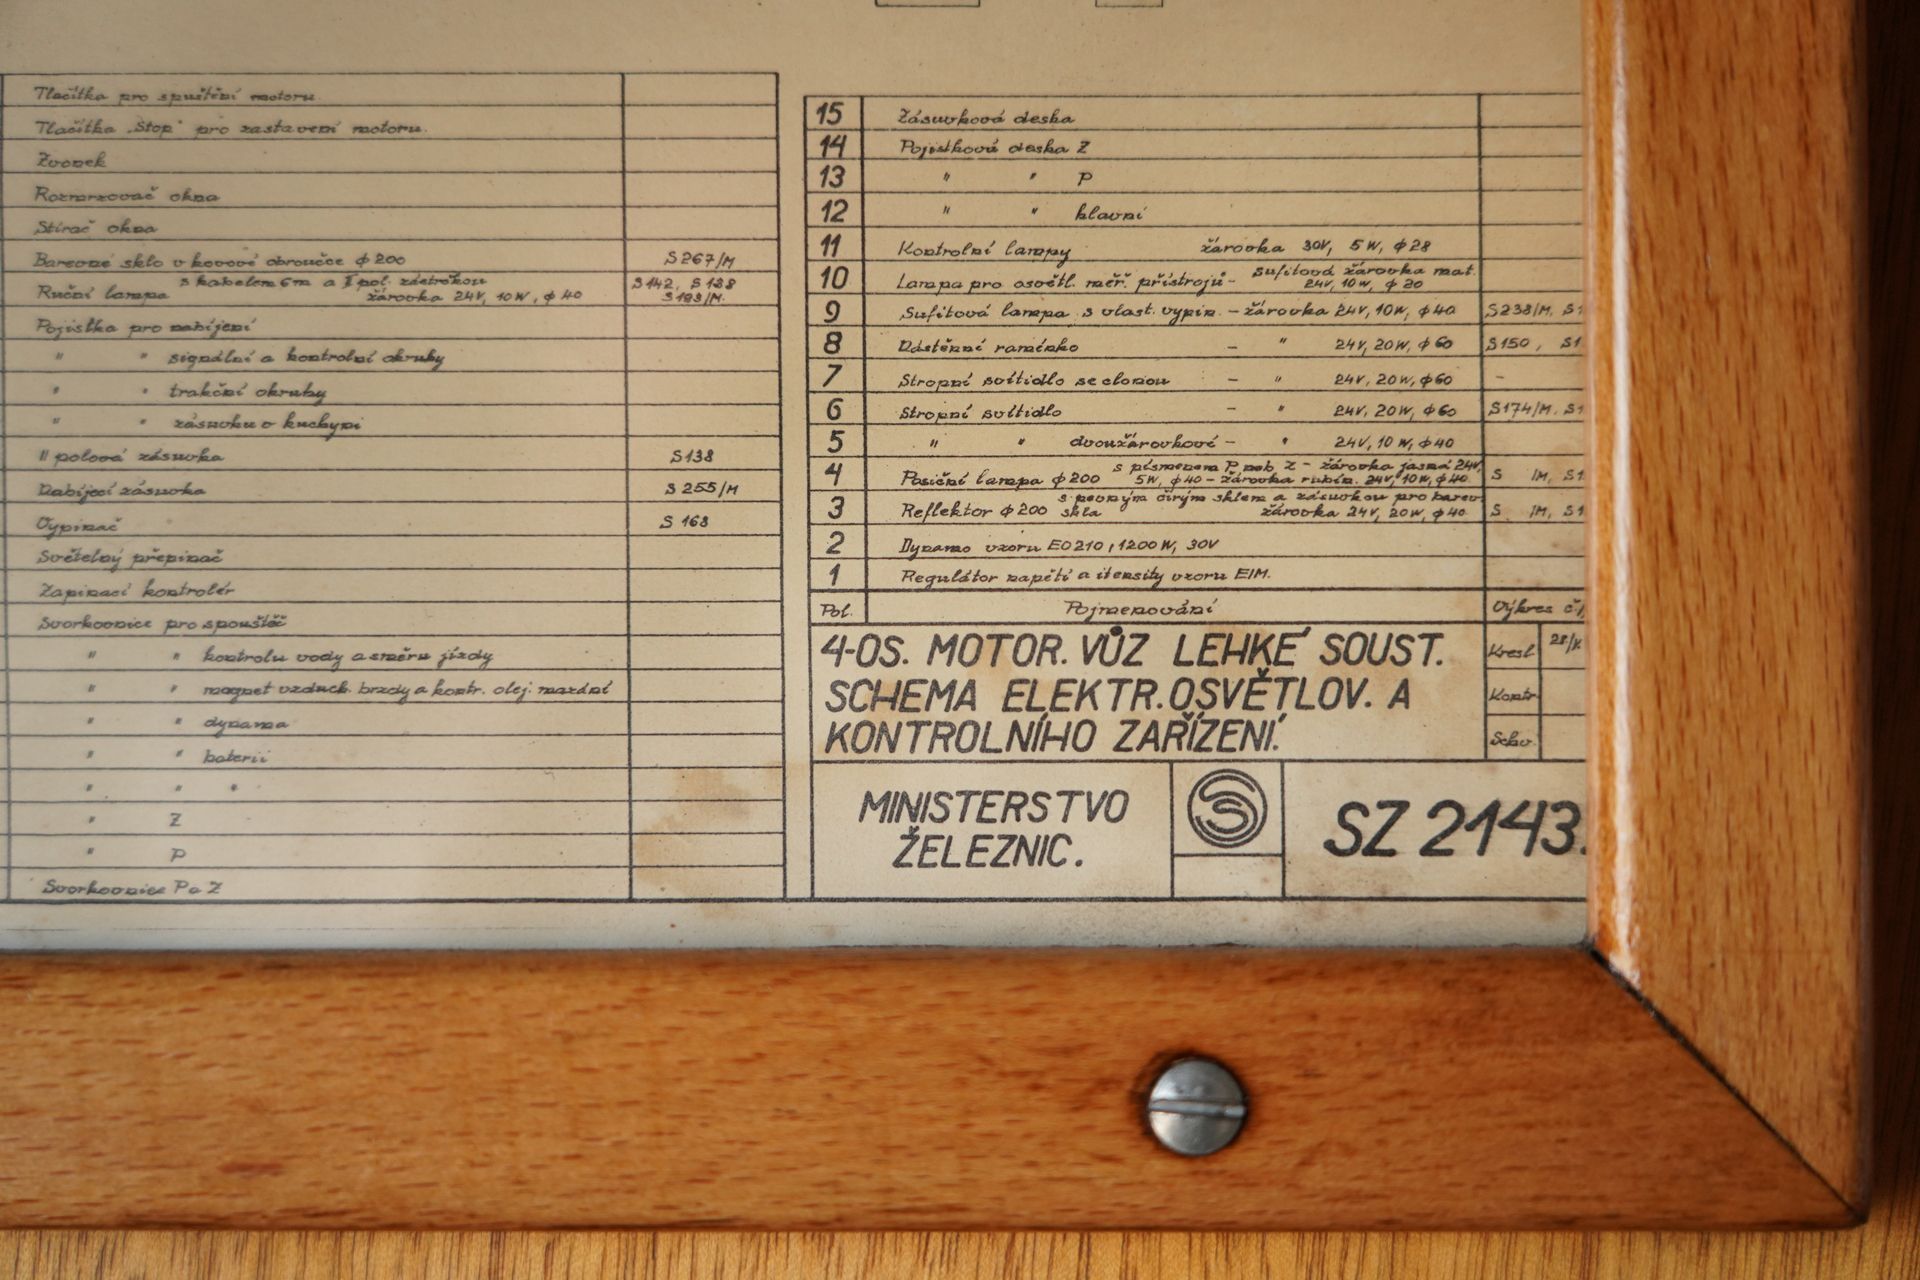 Tlačítka pro spuštění motoru.
Tlačítka „Stop" pro zastavení motoru.
Zvonek
Rozmrzovač okna
Stírač okna
Barevné sklo v kovové obroučce ϕ 200 S 267/M
Ruční lampa s kabelem 6m a II pol. zástrčkou S 142, S 138
žárovka 24V, 10W, ϕ 40 S 193/M.
Pojistka pro nabíjení
" " signální a kontrolní okruhy
" " trakční okruhy
" " zásuvku v kuchyni
II polová zásuvka S 138
Nabíjecí zásuvka S 255/M
Vypínač S 168
Světelný přepínač
Zapínací kontrolér
Svorkovnice pro spouštěč
" " kontrolu vody a směru jízdy
" " magnet vzduch. brzdy a kontr. olej. mazání
" " dynama
" " baterii
" " "
" Z
" P
Svorkovnice P a Z
15 Zásuvková deska
14 Pojistková deska Z
13 " " P
12 " " hlavní
11 Kontrolní lampy žárovka 30V, 5W, ϕ 28
10 Lampa pro osvětl. měř. přístrojů - Sufitová žárovka mat.
24V, 10W, ϕ 20
9 Sufitová lampa s vlast. vypín. - žárovka 24V, 10W, ϕ 40 S238/M, S1
8 Nástěnní raménko - " 24V, 20W, ϕ 60 S150, S1
7 Stropní svítidlo se clonou - " 24V, 20W, ϕ 60 -
6 Stropní svítidlo - " 24V, 20W, ϕ 60 S174/M. S1
5 " " dvoužárovkové - " 24V, 10W, ϕ 40
4 Posiční lampa ϕ 200 s písmenem P neb Z - žárovka jasná 24V,
5W, ϕ 40 - žárovka rubín. 24V, 10W, ϕ 40 S /M, S1
3 Reflektor ϕ 200 s pevným čirým sklem a zásuvkou pro barev.
skla žárovka 24V, 20W, ϕ 40 S /M, S1
2 Dynamo vzoru EO210, 1200W, 30V
1 Regulátor napětí a itensity vzoru EIM.
Pol. Pojmenování Výkres č.
4-OS. MOTOR. VŮZ LEHKÉ SOUST.
SCHEMA ELEKTR. OSVĚTLOV. A
KONTROLNÍHO ZAŘÍZENÍ.
Kresl. 28/X
Kontr.
Schv.
MINISTERSTVO
ŽELEZNIC.
SZ 2143.